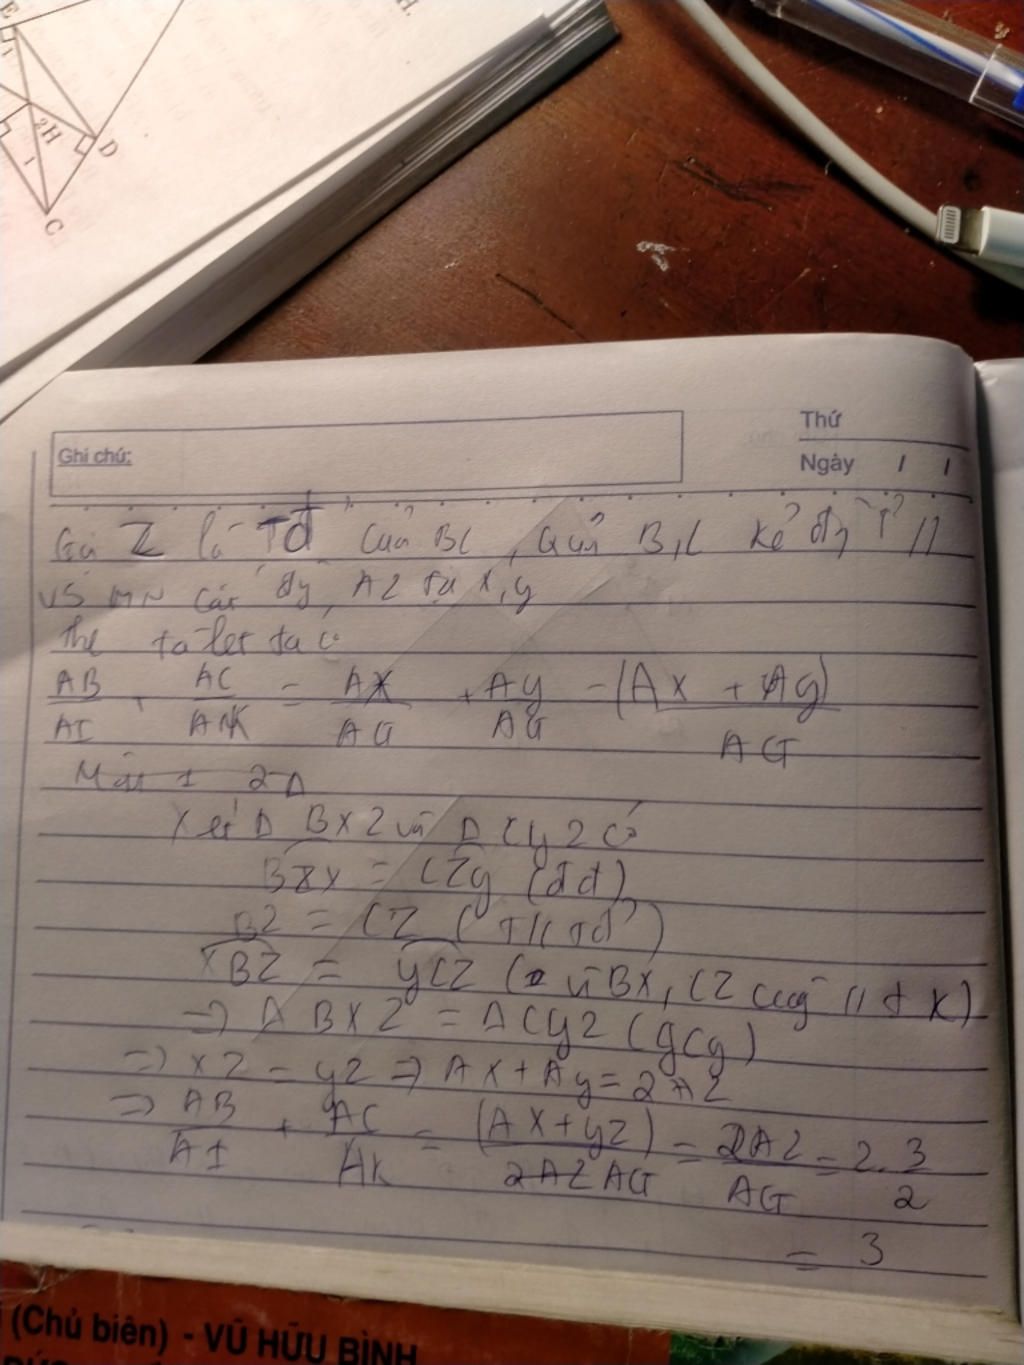 E
1
2H
1
D
C
H.
Thứ
Ghi chú:
Ngày / /
Gọi Z là Tđ của BC, Qua B, C kẻ đg //
vs MN cắt đg AZ tại X, y
ta let ta có
AB/AI + AC/AK = AX/AG + Ay/AG = (AX + Ay)/AG
Xét Δ BXZ và Δ CyZ có
BZX = CZy (đđ)
BZ = CZ (Tđ)
XBZ = yCZ (vì BX, CZ cùng //)
=> Δ BXZ = Δ CyZ (gcg)
=> XZ = yZ => AX + Ay = 2AZ
=> AB/AI + AC/AK = (AX + yZ)/AG = 2AZ/AG = 2. 3/2
= 3
(Chủ biên) - VŨ HỮU BÌNH